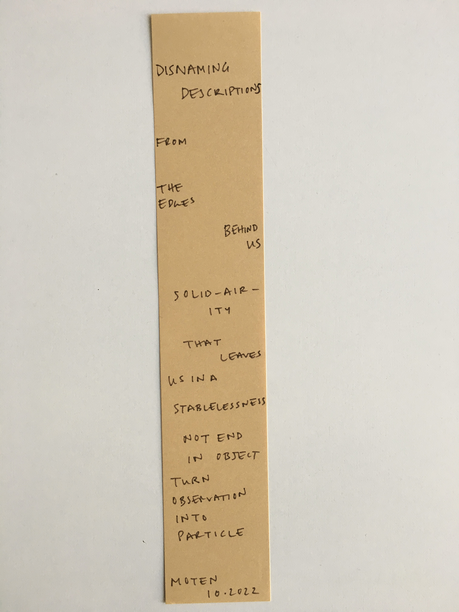 DISNAMING
DESCRIPTIONS
FROM
THE
EDGES
BEHIND
US
SOLID-AIR-
ITY
THAT
LEAVES
US IN A
STABLELESSNESS
NOT END
IN OBJECT
TURN
OBSERVATION
INTO
PARTICLE
MOTEN
10.2022